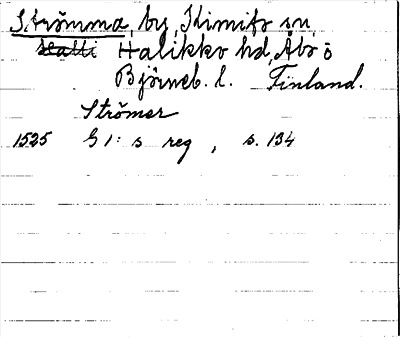 Strömma, by, Kimito sn,
Halikko hd, Åbo ö
Björneb. l. Finland.
Strömer
1525 G I: s reg, s. 134